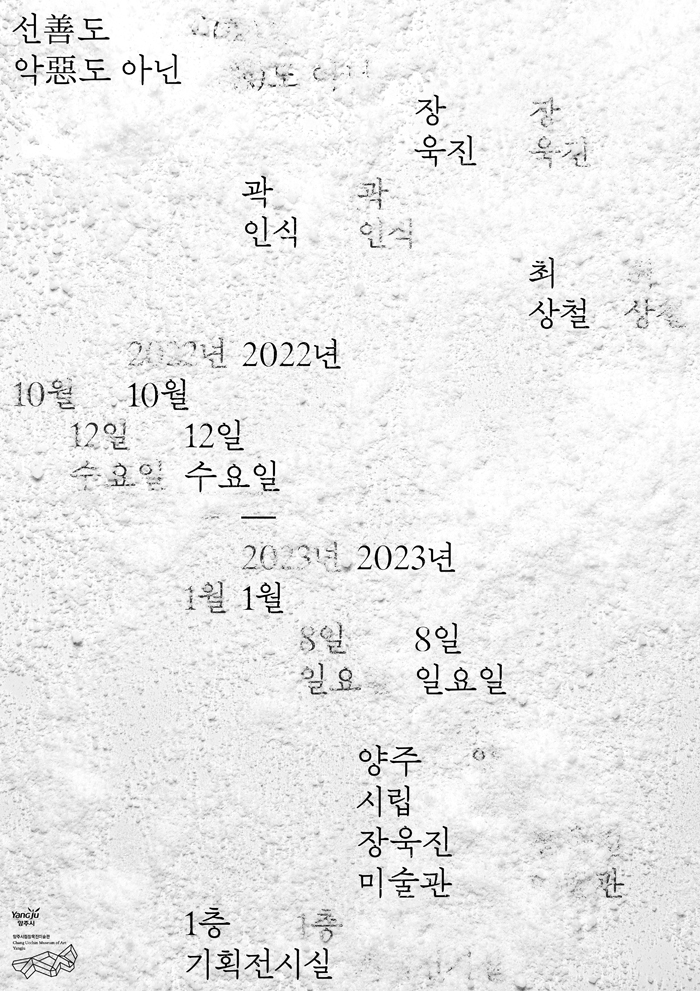 선善도
악惡도 아닌
장 장
욱진 욱진
곽 곽
인식 인식
최
상철 상철
2022년 2022년
10월 10월
12일 12일
수요일 수요일
—
2023년 2023년
1월 1월
8일 8일
일요 일요일
양주
시립
장욱진
미술관 관
1층 1층
기획전시실
Yangju
양주시
양주시립장욱진미술관
Chang Ucchin Museum of Art
Yangju